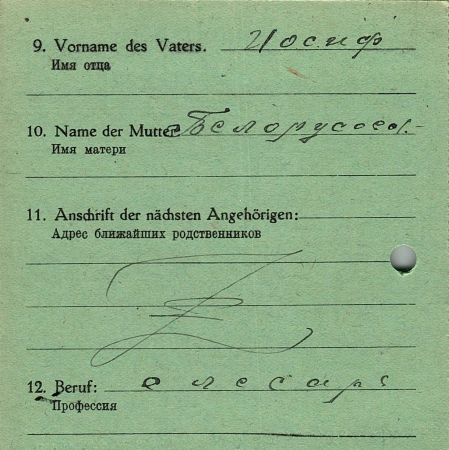 9. Vorname des Vaters. Иосиф
Имя отца
10. Name der Mutter Белорусова.-
Имя матери
11. Anschrift der nächsten Angehörigen:
Адрес ближайших родственников
12. Beruf: слесарь
Профессия